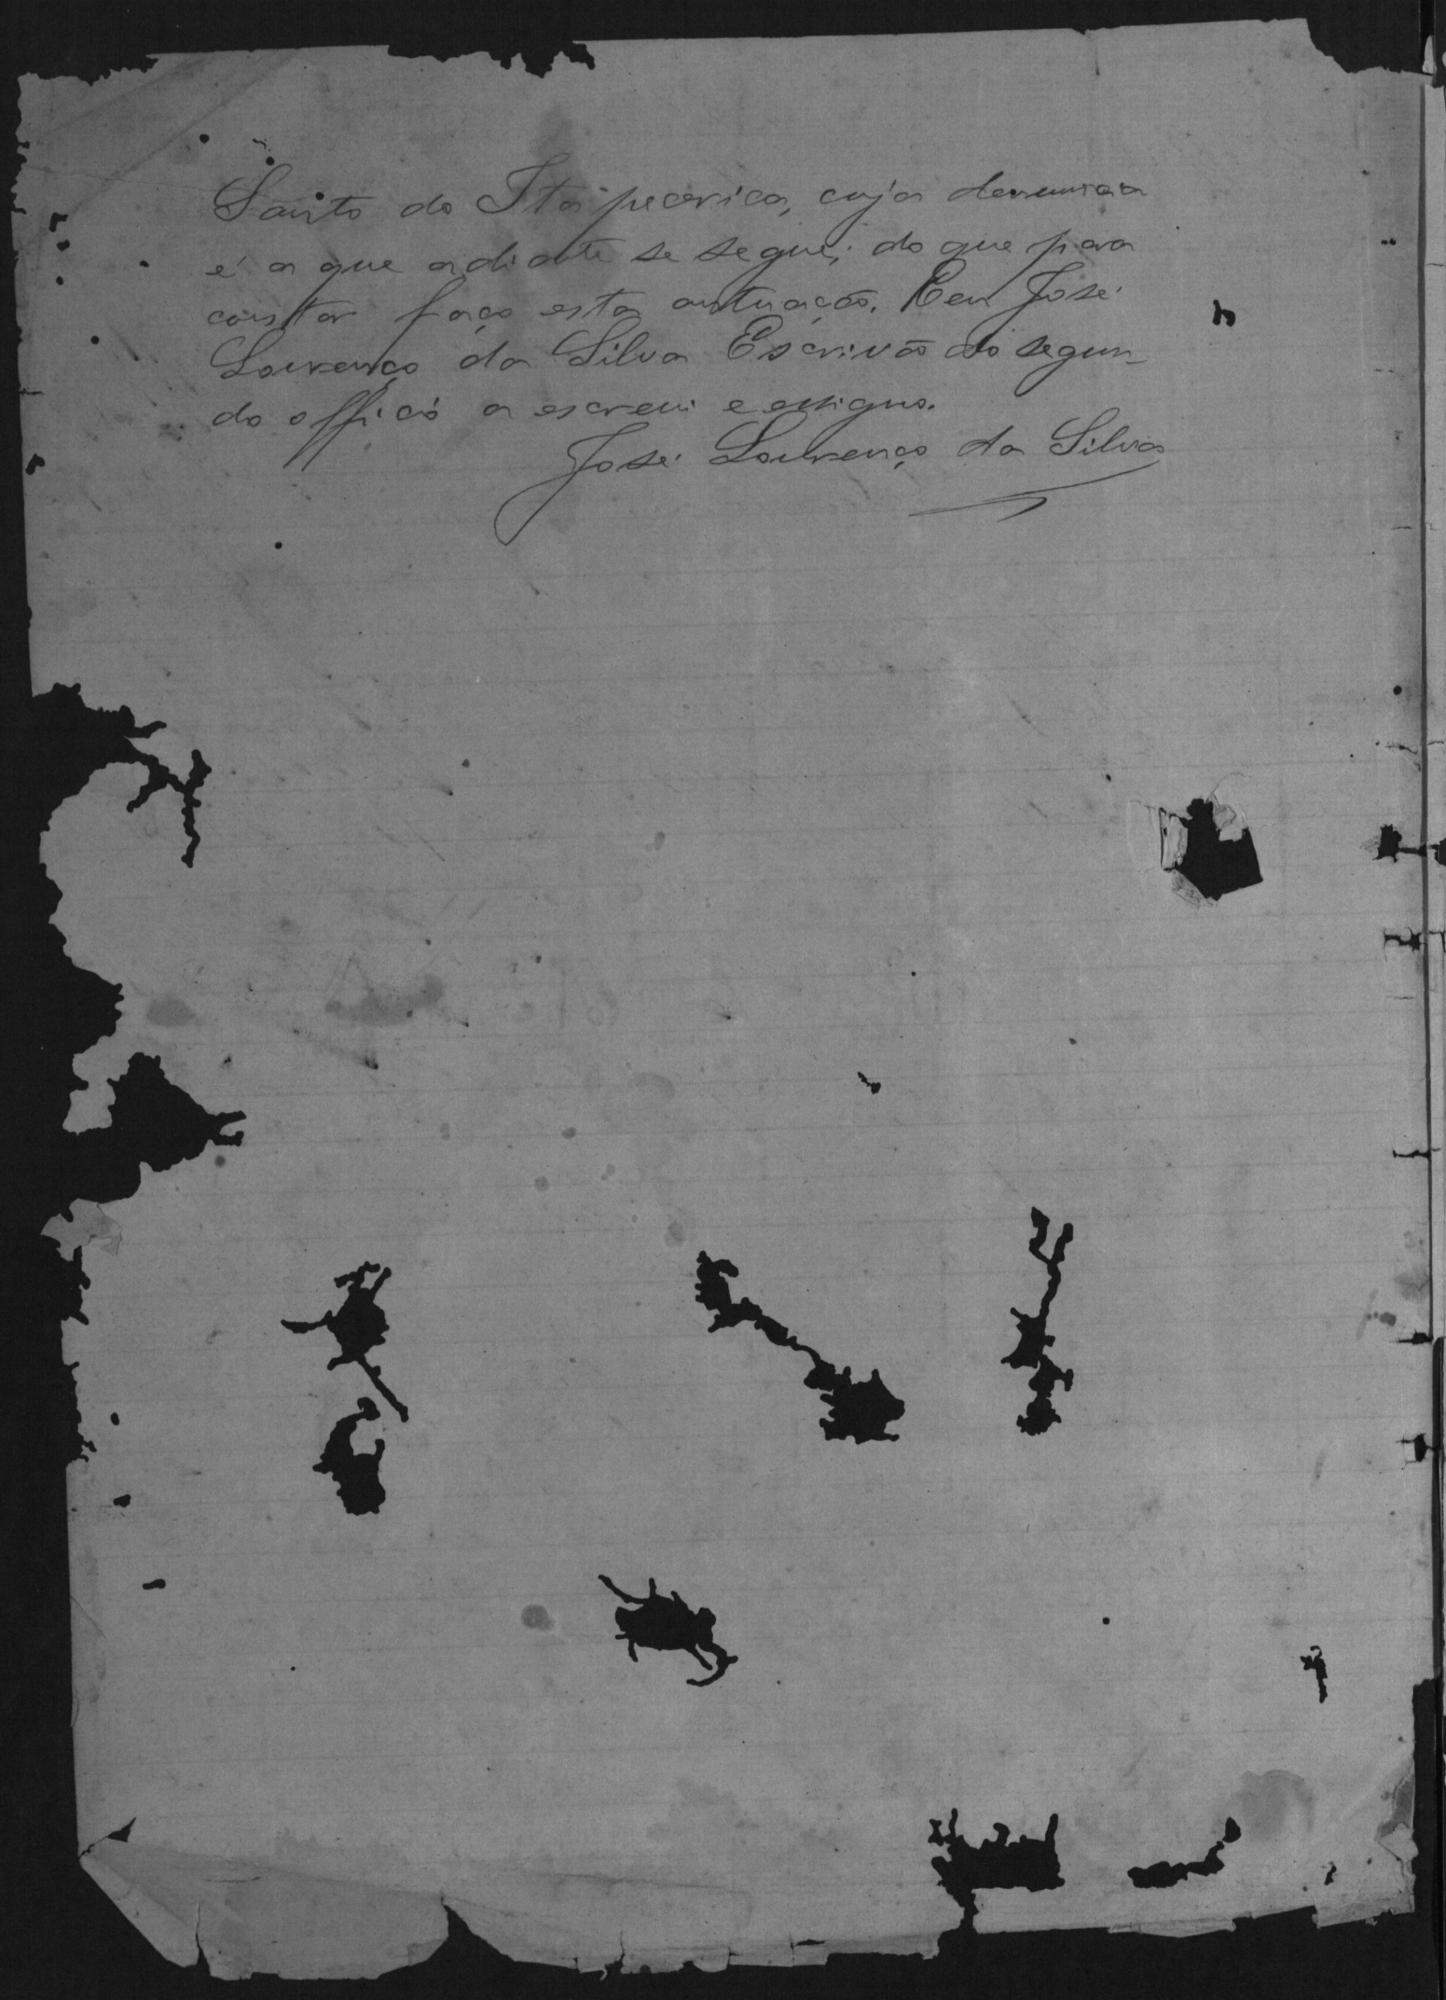 Santo do Itapecerica, cuja denuncia
é a que adiante se segue; do que para
constar faço esta autuação. Eu José
Lourenço da Silva Escrivão do segun_
do officio a escrevi e assigno.
José Lourenço da Silva